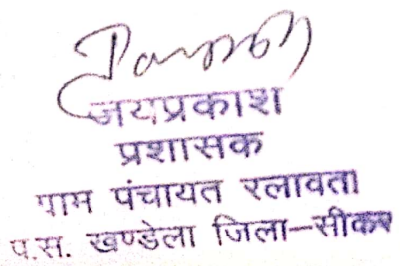 जयप्रकाश
प्रशासक
ग्राम पंचायत रलावता
प.स. खण्डेला जिला-सीकर